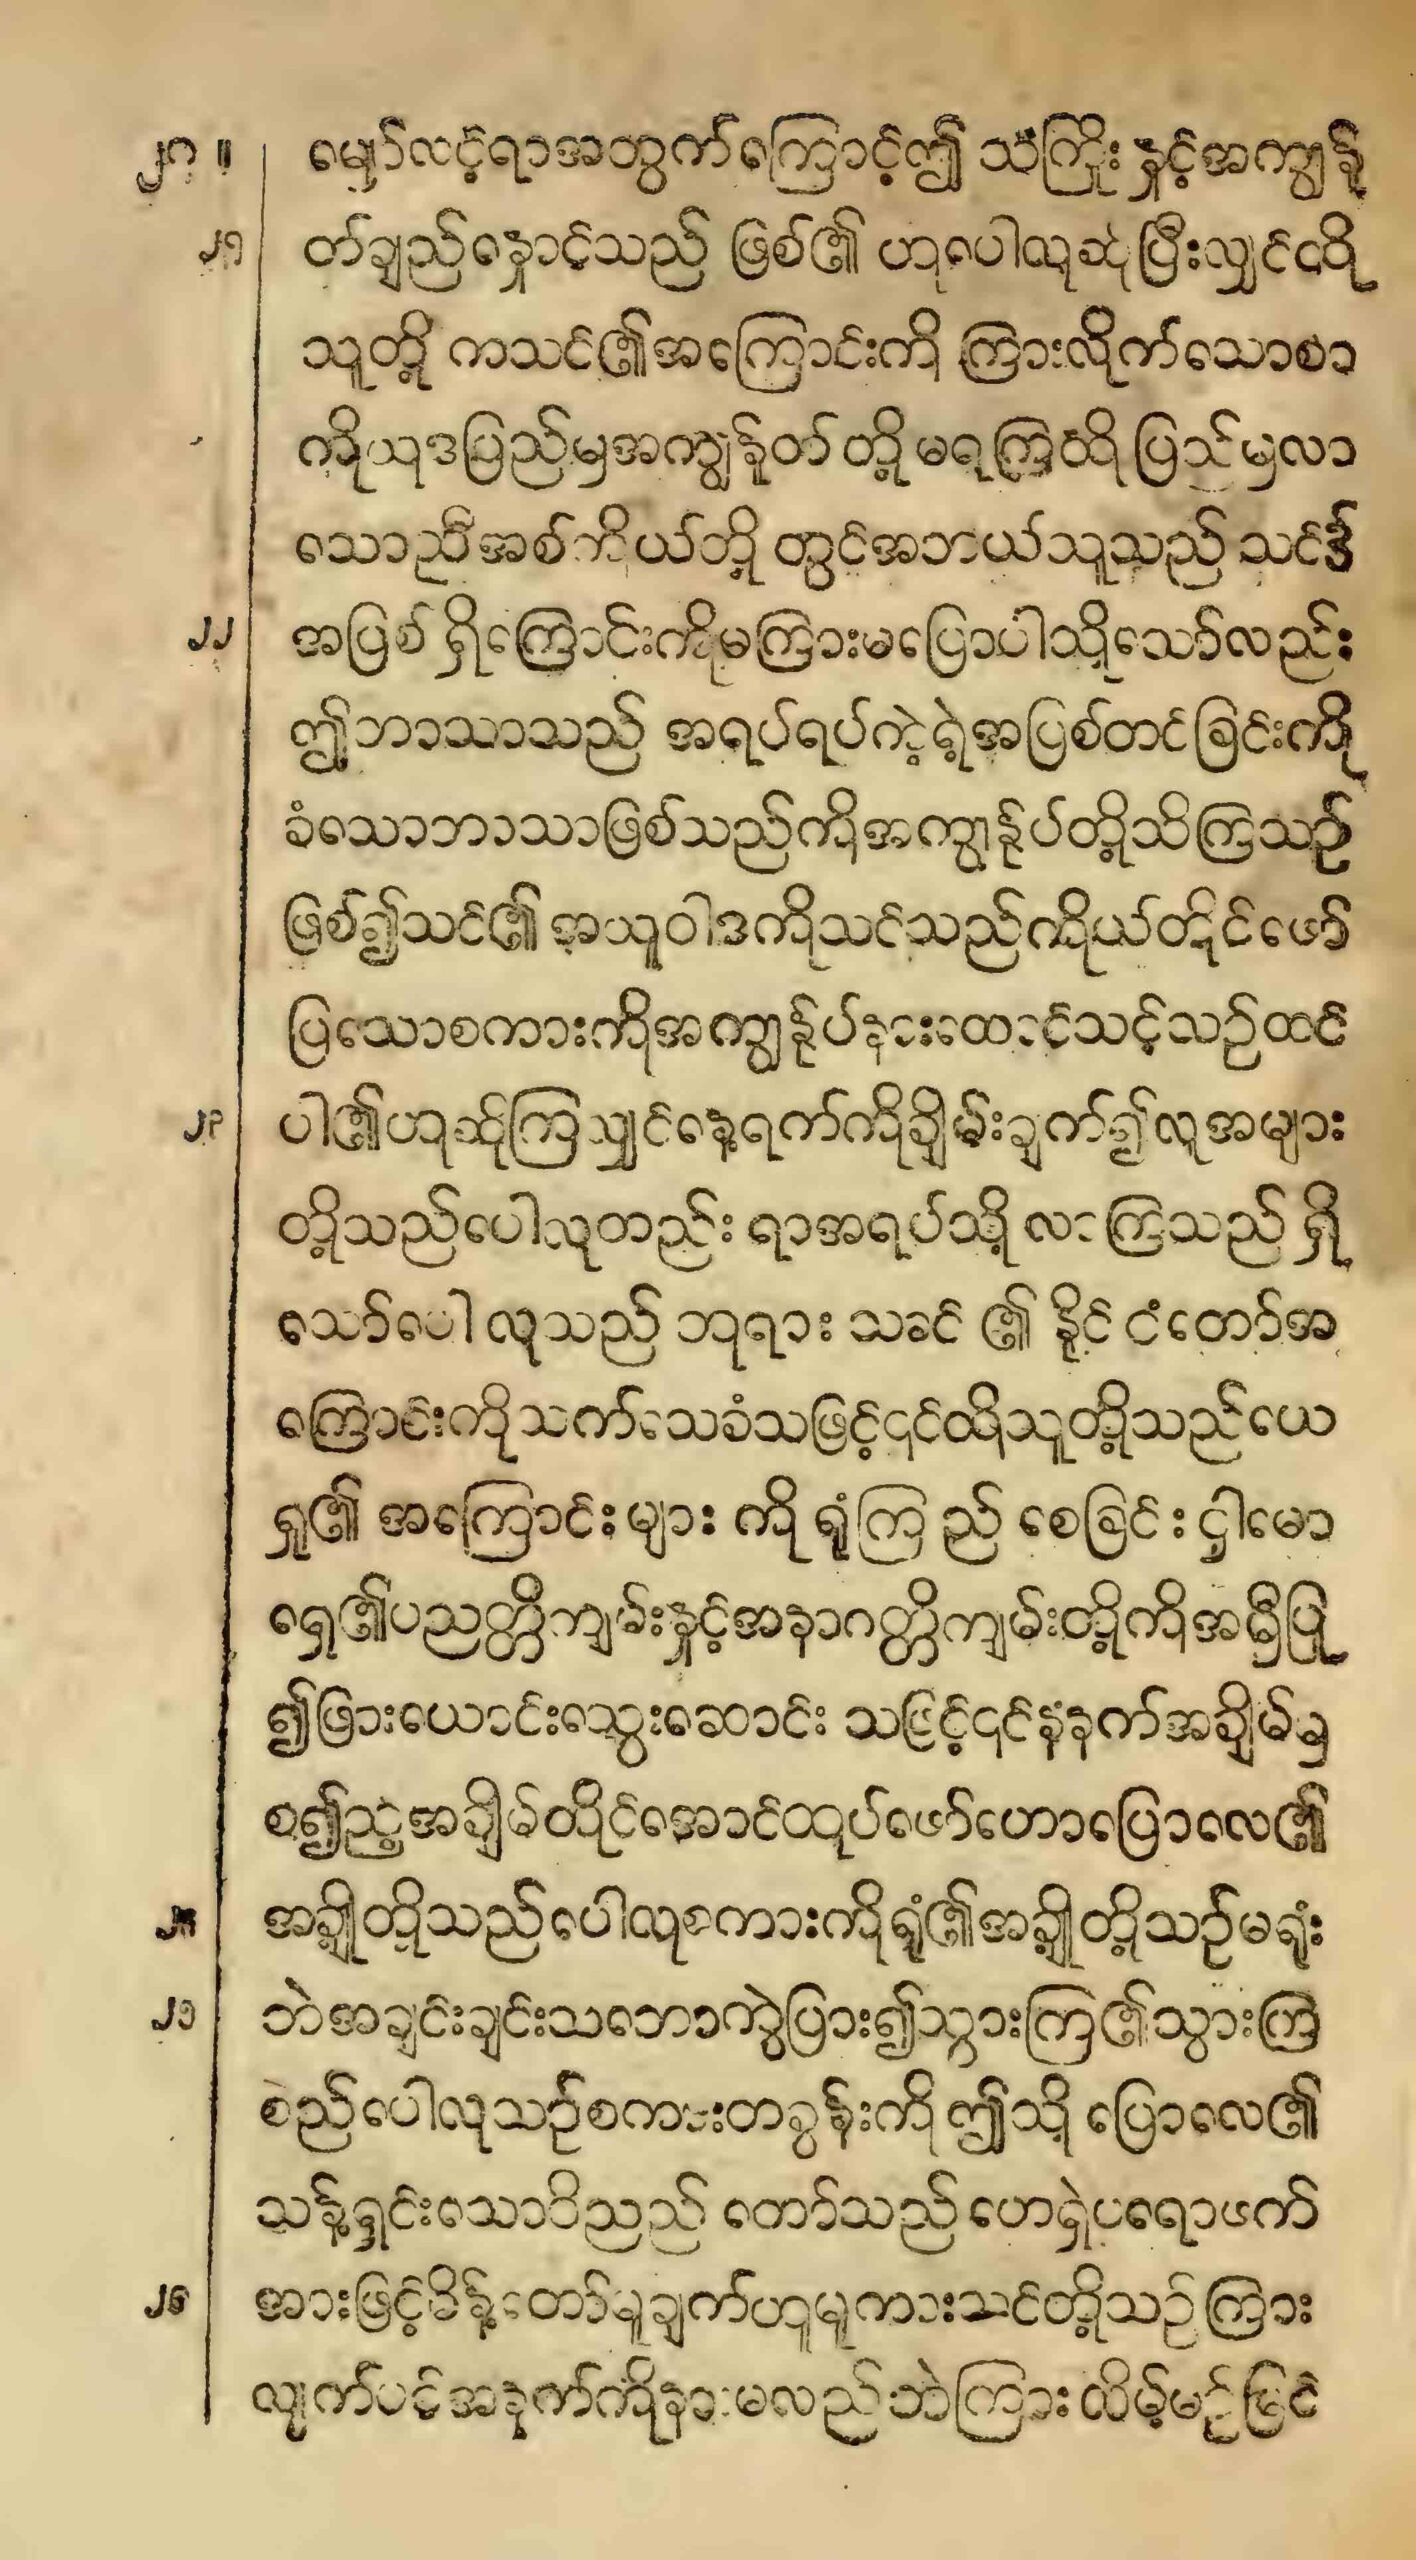 ၂ဂ ။ မျှော်လင့်ရာအတွက်ကြောင့်ဤ သံကြိုး နှင့်အကျွန်ု
၂၁ တ်ချည်နှောင့်သည် ဖြစ်၏ ဟုပေါလုဆုံပြီးလျှင်ငထို
သူတို့ ကသင်၏အကြောင်းကို ကြားလိုက်သောစာ
ကိုယုဒပြည်မှအကျွန်ုတ် တို့မရကြထိုပြည်မှလာ
သောညီအစ်ကိုယ်တို့ တွင်အဘယ်သူသည် သင်၌
၂၂ အပြစ် ရှိကြောင်းကိုမကြားမပြောပါသို့သော်လည်း
ဤဘာသာသည် အရပ်ရပ်ကဲ့ရဲ့အပြစ်တင်ခြင်းကို
ခံသောဘာသာဖြစ်သည်ကိုအကျွန်ုပ်တို့သိကြသဉ်
ဖြစ်၍သင်၏ အယူဝါဒကိုသင်သည်ကိုယ်တိုင်ဖော်
ပြသောစကားကိုအကျွန်ုပ်နားထောင်သင့်သဉ်ထင်
၂၃ ပါ၏ဟုဆိုကြလျှင်နေ့ရက်ကိုချိမ်းချက်၍လူအများ
တို့သည်ပေါလုတည်း ရာအရပ်သို့ လာကြသည် ရှိ
သော်ပေါ လုသည် ဘုရား သခင် ၏ နိုင် ငံတော်အ
ကြောင်းကိုသက်သေခံသဖြင့်၎င်ထိုသူတို့သည်ယေ
ရှု၏ အကြောင်းများ ကို ရုံကြ ည် စေခြင်း ဌါမော
ရှေ၏ပညတ္တိကျမ်းနှင့်အနာဂတ္တိကျမ်းတို့ကိုအမှီပြု
၍ဖြားယောင်းသွေးဆောင်း သဖြင့်၎င်နံနက်အချိမ်မှ
စ၍ညအချိမ်တိုင်အောင်ထုပ်ဖော်ဟောပြောလေ၏
၂၄ အချို့တို့သည်ပေါလုစကားကိုရုံ၏အချို့တို့သဉ်မရုံး
၂၅ ဘဲအချင်းချင်းသဘောကွဲပြား၍သွားကြ၏သွားကြ
စည်ပေါလုသဉ်စကားတခွန်းကို ဤသို့ ပြောလေ၏
သန့်ရှင်းသောဝိညည် တော်သည်ဟေရှဲပရောဖက်
၂၆ အားဖြင့်မိန့်တော်မူချက်ဟူမူကားသင်တို့သဉ်ကြား
လျက်ပင်အနက်ကိုနားမလည်ဘဲကြားလိမ့်မဉ်မြင်